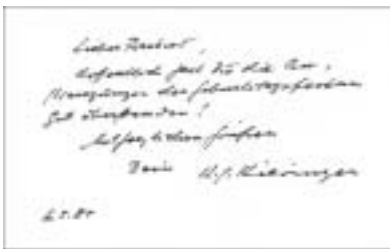 Lieber Herbert,
hoffentlich hast Du die An-
strengungen der Geburtstagsfeier
gut überstanden!
Mit herzlichen Grüßen
Dein